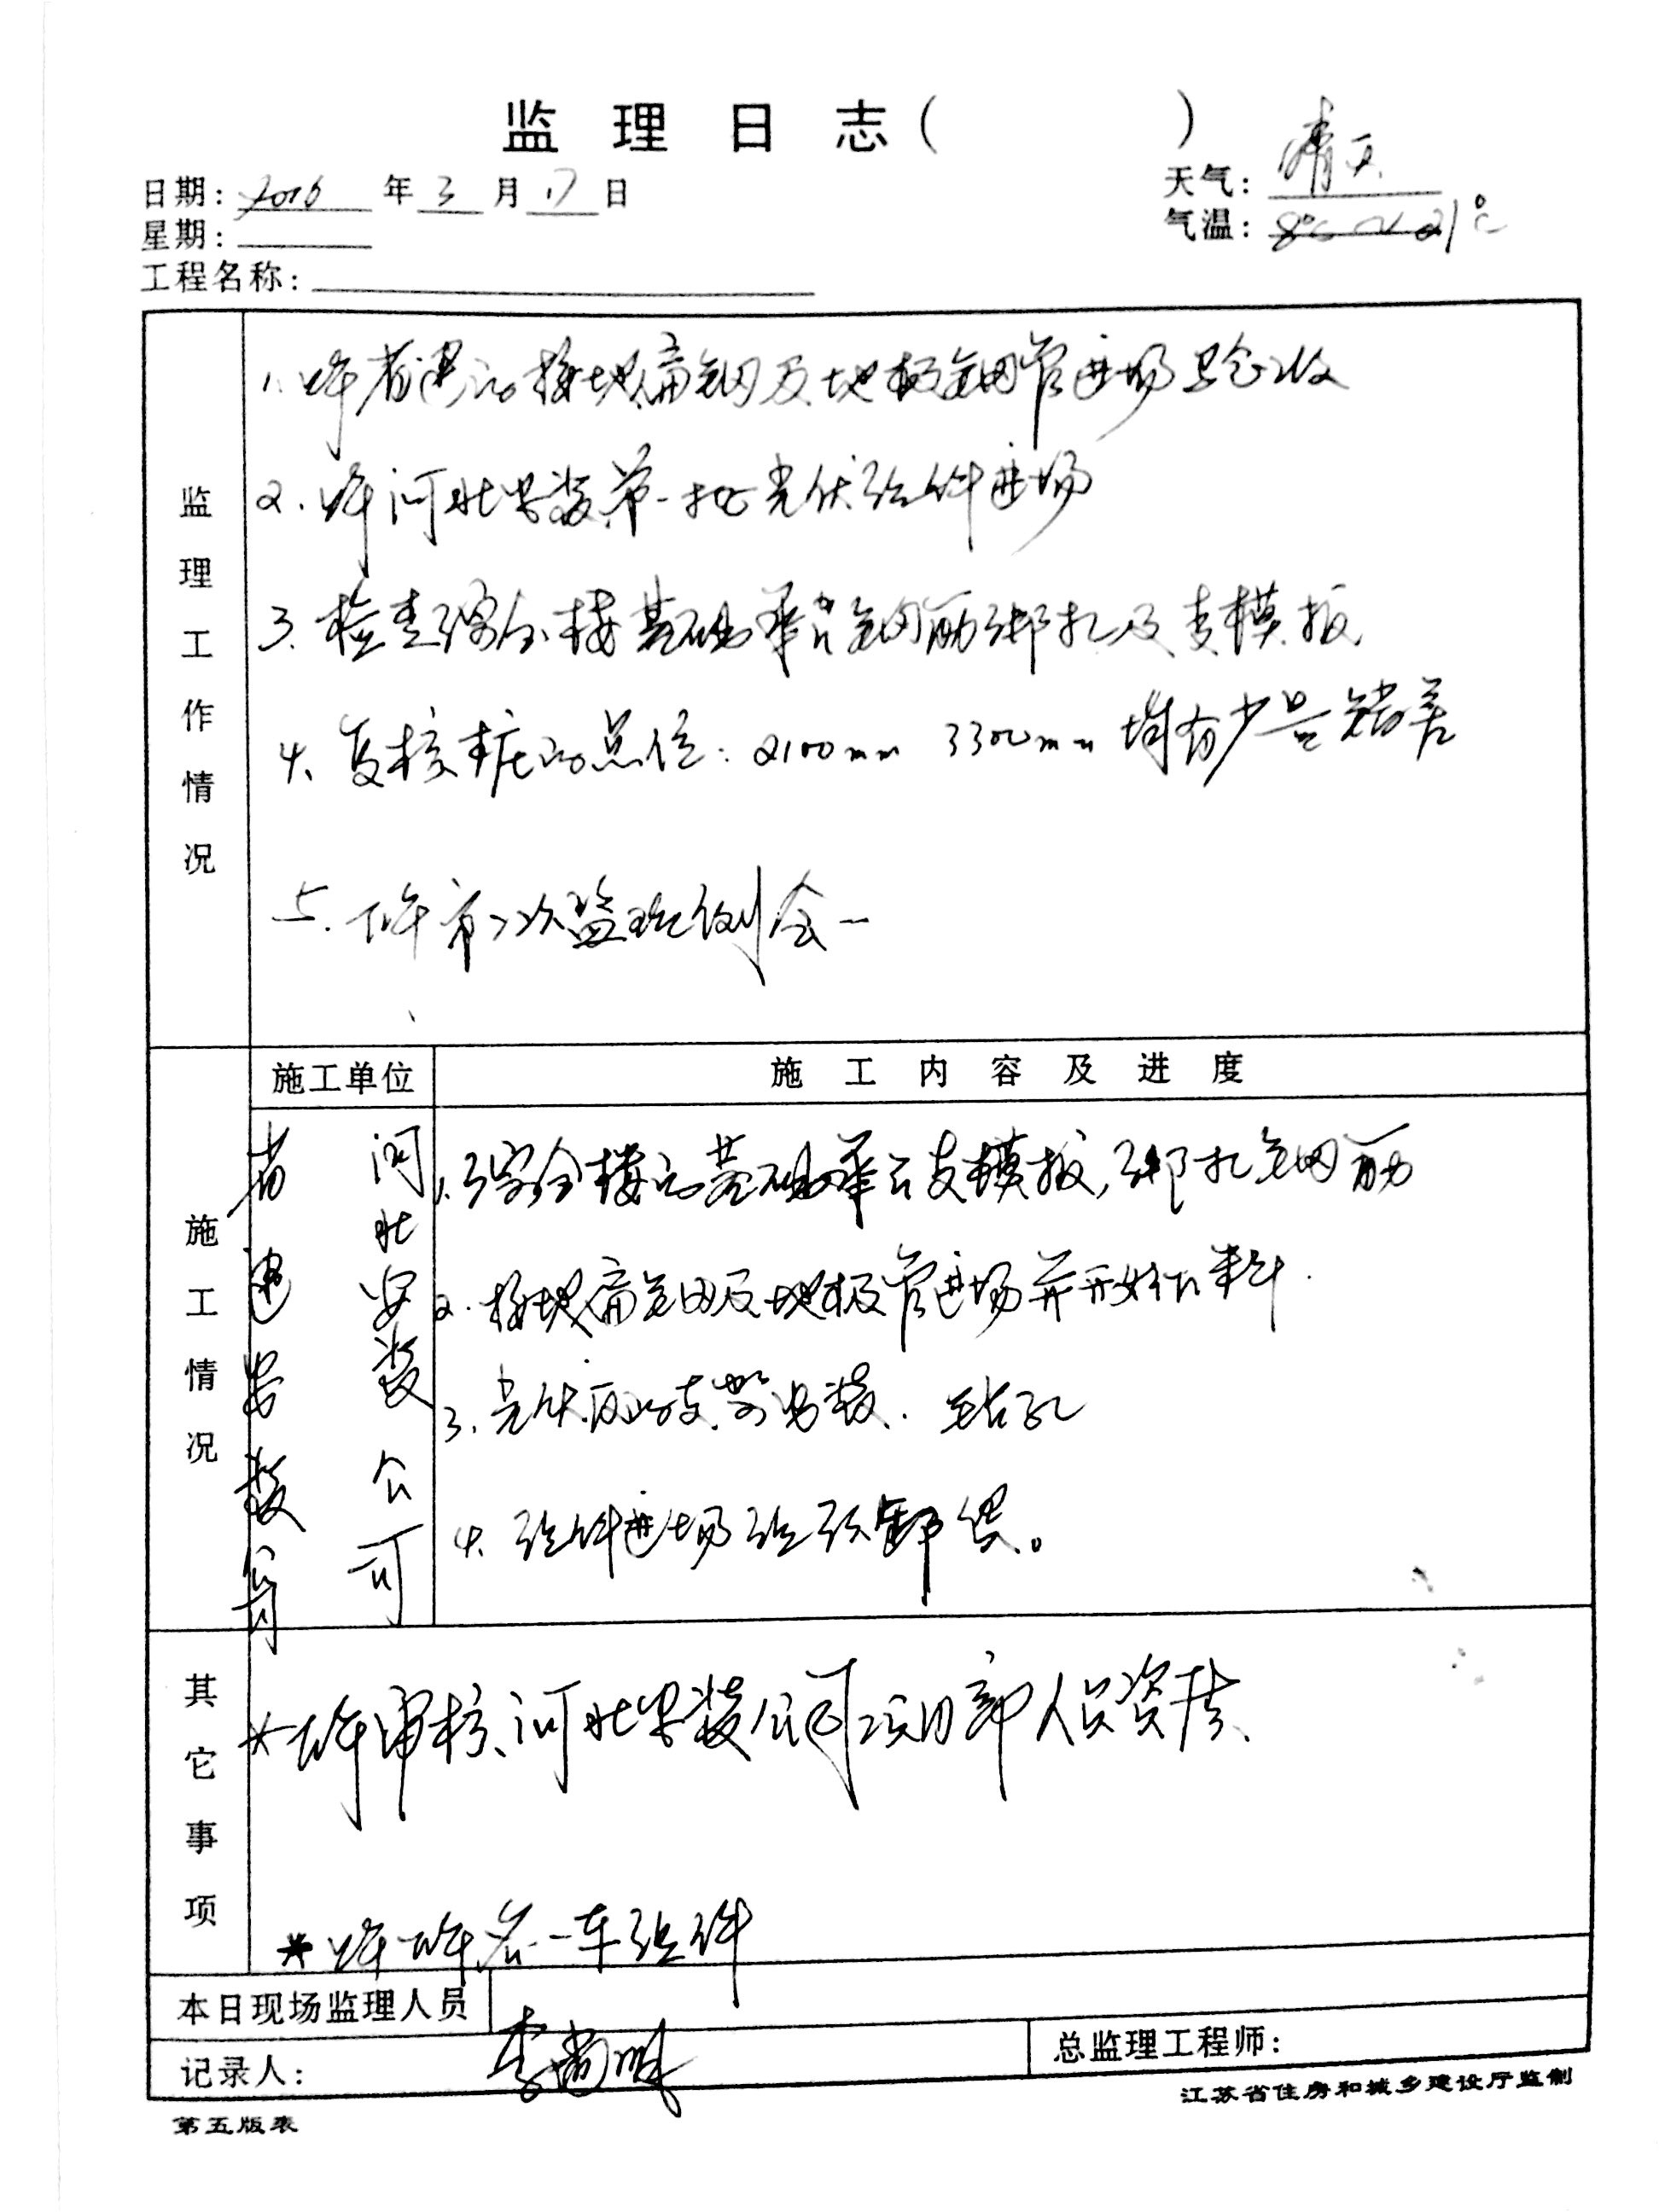 监理日志（ ）
日期：2016年3月17日
天气：晴天
星期：
气温：8℃~21℃
工程名称：
监理工作情况
1. 上午省建的接地扁钢及地极钢管进场验收
2. 上午河北安装第一批光伏组件进场
3. 检查综合楼基础承台钢筋绑扎及支模板
4. 复核桩的点位：2100mm 3300mm 均有少量错差
5. 下午第二次监理例会
施工单位
施工内容及进度
施工情况
省建安装公司
河北安装公司
1. 综合楼的基础承台支模板，绑扎钢筋
2. 接地扁钢及地极管进场并开始下料.
3. 光伏区的支架安装. 钻孔
4. 组件进场组织卸货。
其它事项
* 下午审核河北安装公司项目部人员资质
* 上午下午各一车组件
本日现场监理人员
记录人：
总监理工程师：
第五版表
江苏省住房和城乡建设厅监制